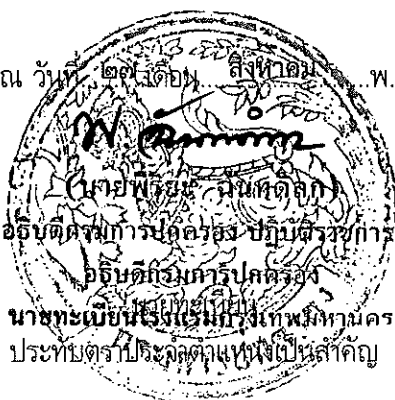 ณ วันที่ ๒๗ เดือน สิงหาคม พ.
(นายพีรยุ ฉันทดิลก)
อธิบดีกรมการปกครอง ปฏิบัติราชการ
อธิบดีกรมการปกครอง
นายทะเบียน
นายทะเบียนโรงแรมกรุงเทพมหานคร
ประทับตราประจำตำแหน่งเป็นสำคัญ